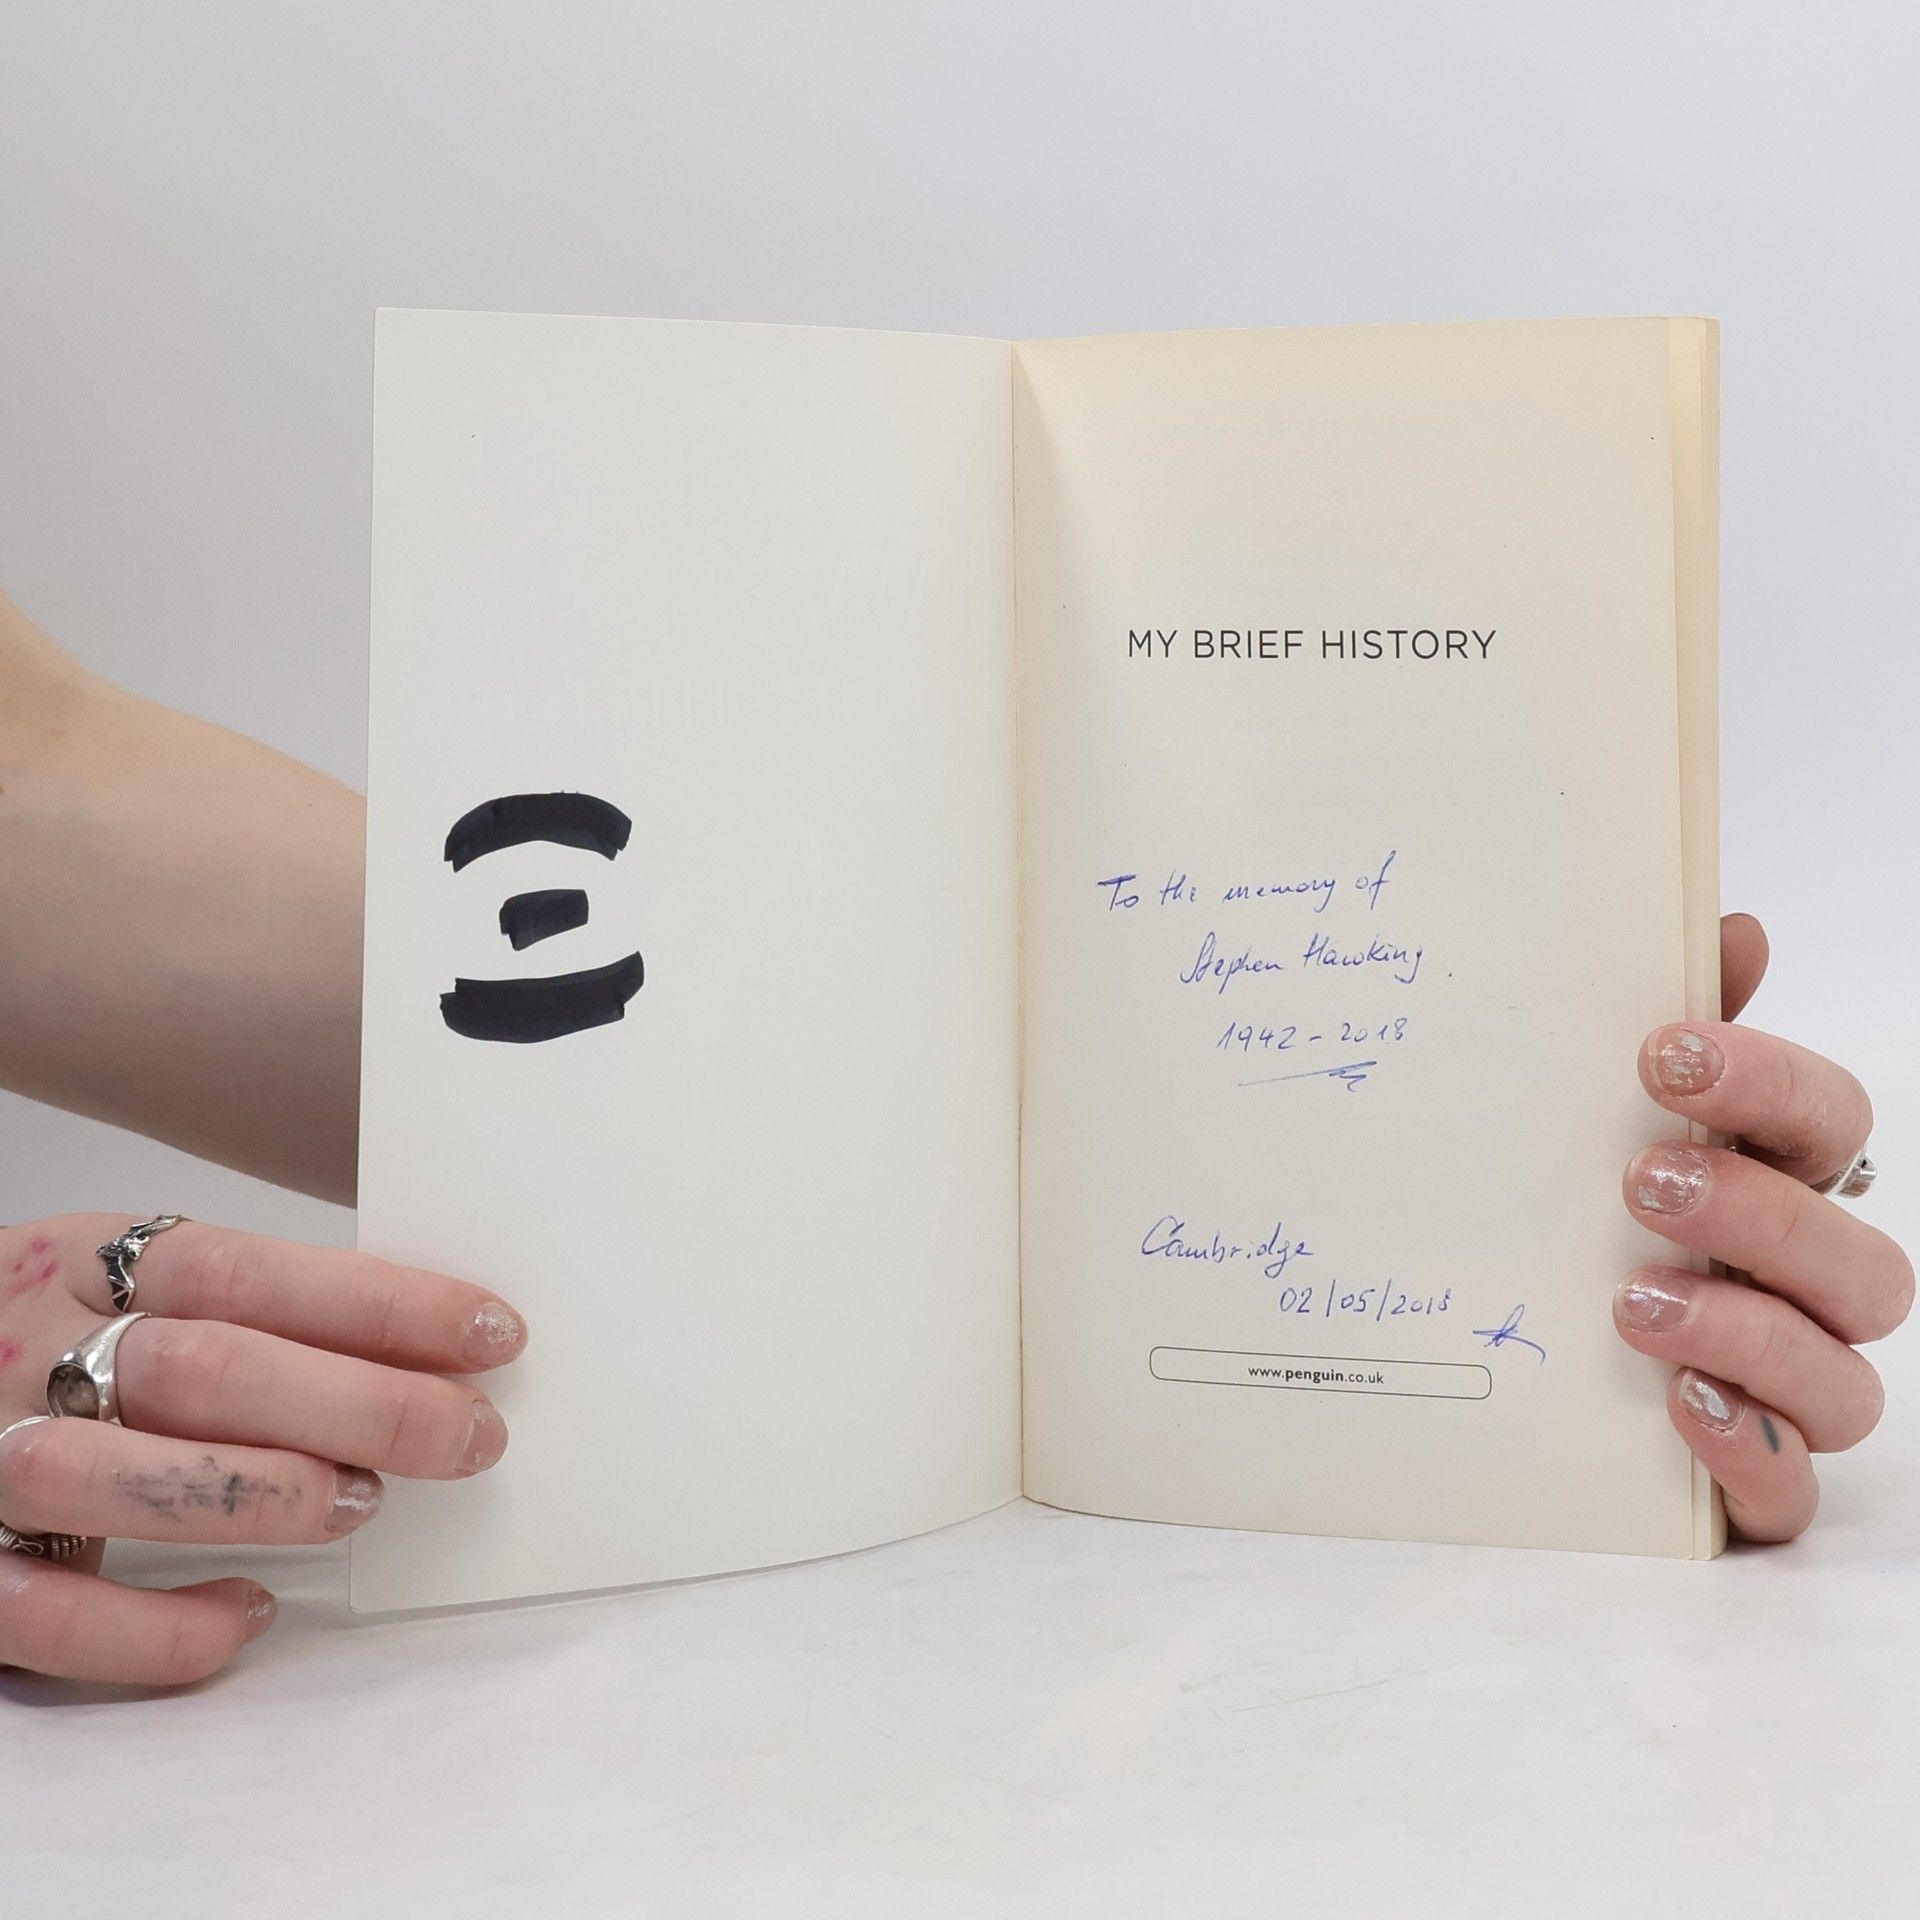 MY BRIEF HISTORY
To the memory of
Stephen Hawking.
1942 - 2018
Cambridge
02/05/2018
www.penguin.co.uk